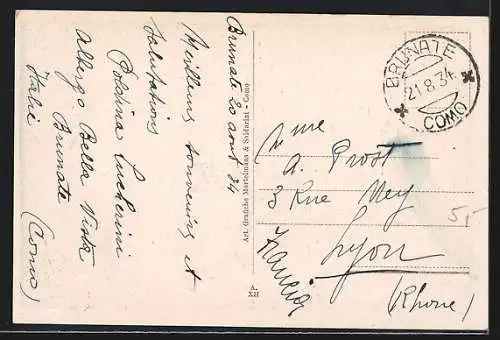 Brunate 20 aout 34
Meilleurs souvenirs et
salutations
Poldina Lucherini
Albergo Bella Vista
Brunate
Italie (Como)
Art. Grafiche Martelmans & Soldarini - Como
A.
XII
BRUNATE
21.8.34
COMO
Mme
A. Prost
3 Rue Ney
Lyon
(Rhone)
Francia
5,-